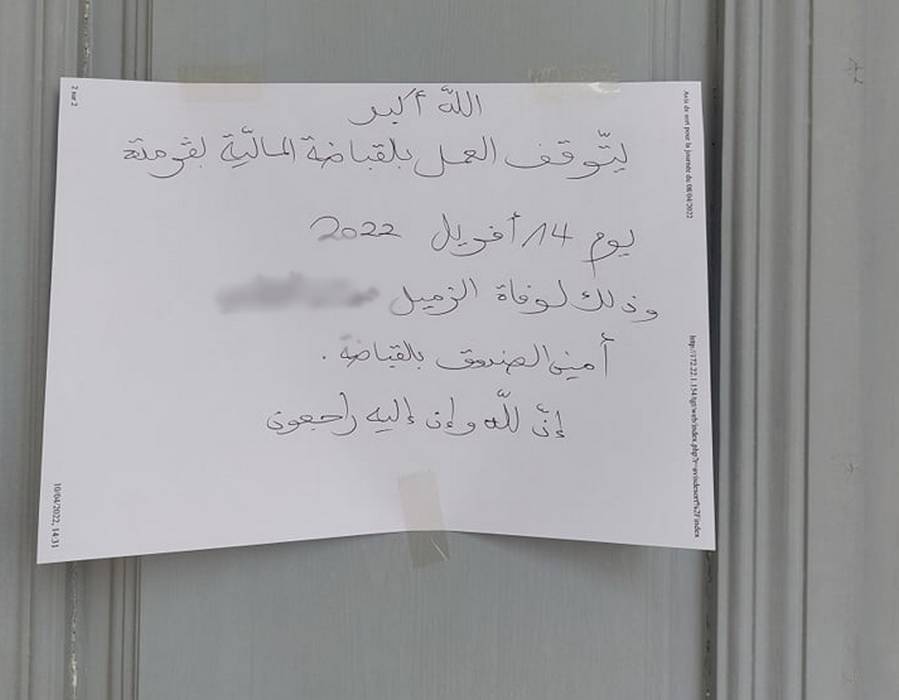 الله أكبر
يتّوقف العمل بلقباضة الماليّة بڨرمدة
يوم 14 أفريل 2022
وذلك لوفاة الزميل
أمين الصندوق بالقباضة .
إنّ للّه وإن إليه راجعون
2 sur 2
Avis de sort pour la journée du 08/04/2022
http://172.22.1.154/tgt/web/index.php?r=avisdesort%2Findex
10/04/2022, 14:31